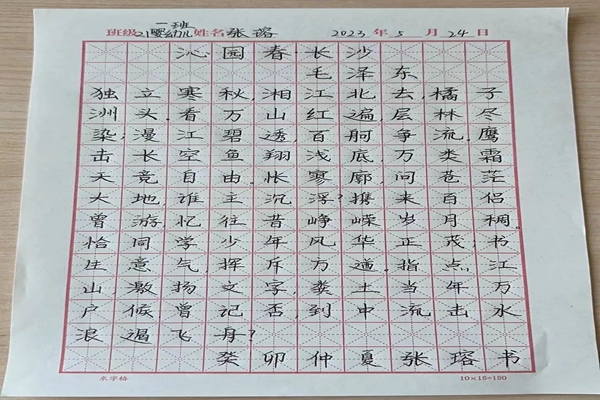 班级21婴幼儿一班 姓名张瑢 2023年5月24日
沁园春·长沙
毛泽东
独立寒秋,湘江北去,橘子
洲头,看万山红遍,层林尽
染;漫江碧透,百舸争流,鹰
击长空鱼翔浅底,万类霜
天竞自由,怅寥廓,问苍茫
大地谁主沉浮?携来百侣
曾游,忆往昔峥嵘岁月稠,
恰同学少年风华正茂;书
生意气,挥斥方遒,指点江
山,激扬文字,粪土当年万
户候曾记否,到中流击水
浪遏飞舟?
癸卯仲夏张瑢书
米字格 10×15=150